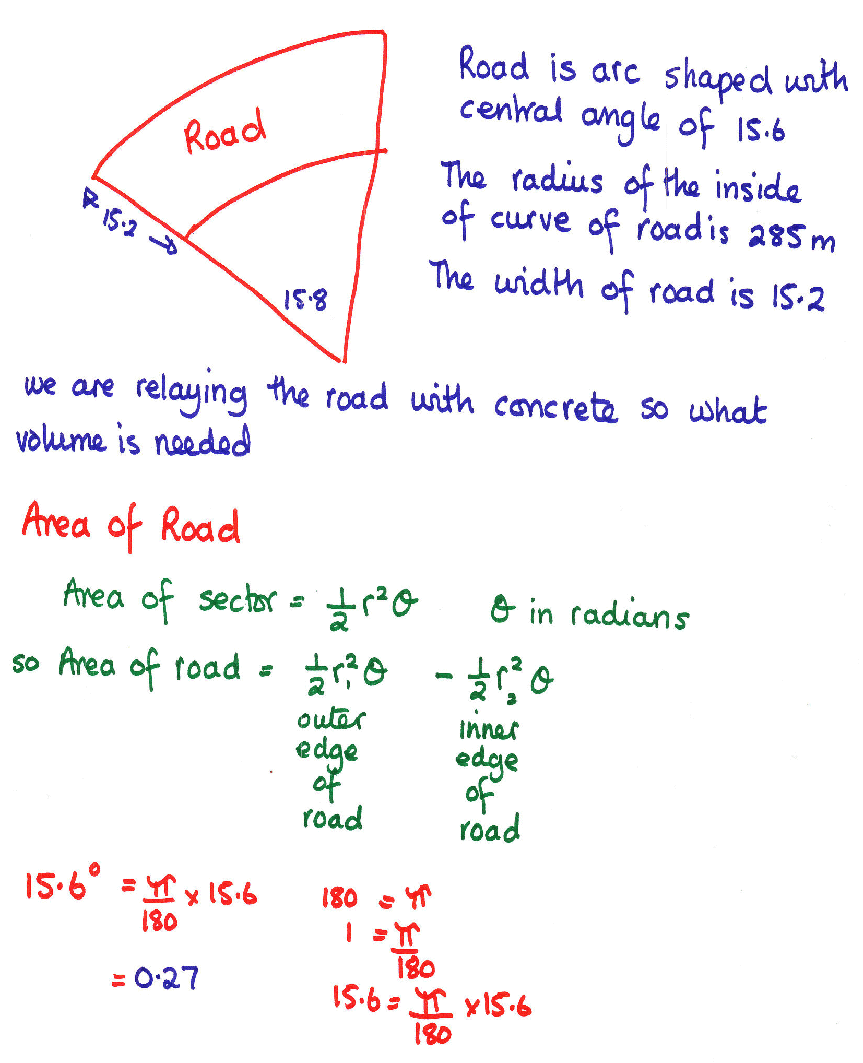 Road is arc shaped with
central angle of 15.6
Road
The radius of the inside
of curve of road is 285m
15.2
The width of road is 15.2
15.8
we are relaying the road with concrete so what
volume is needed
Area of Road
Area of sector = 1/2 r²θ θ in radians
so Area of road = 1/2 r₁²θ - 1/2 r₂²θ
outer inner
edge edge
of of
road road
15.6° = π/180 × 15.6 180 = π
1 = π/180
= 0.27
15.6 = π/180 × 15.6